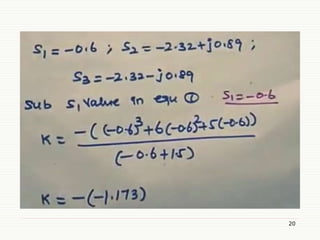 S₁ = -0.6 ; S₂ = -2.32+j0.89 ;
S₃ = -2.32-j0.89
Sub S₁ value in equ ① S₁=-0.6
K = -((-0.6)³+6(-0.6)²+5(-0.6))
(-0.6+1.5)
K = -(-1.173)
20